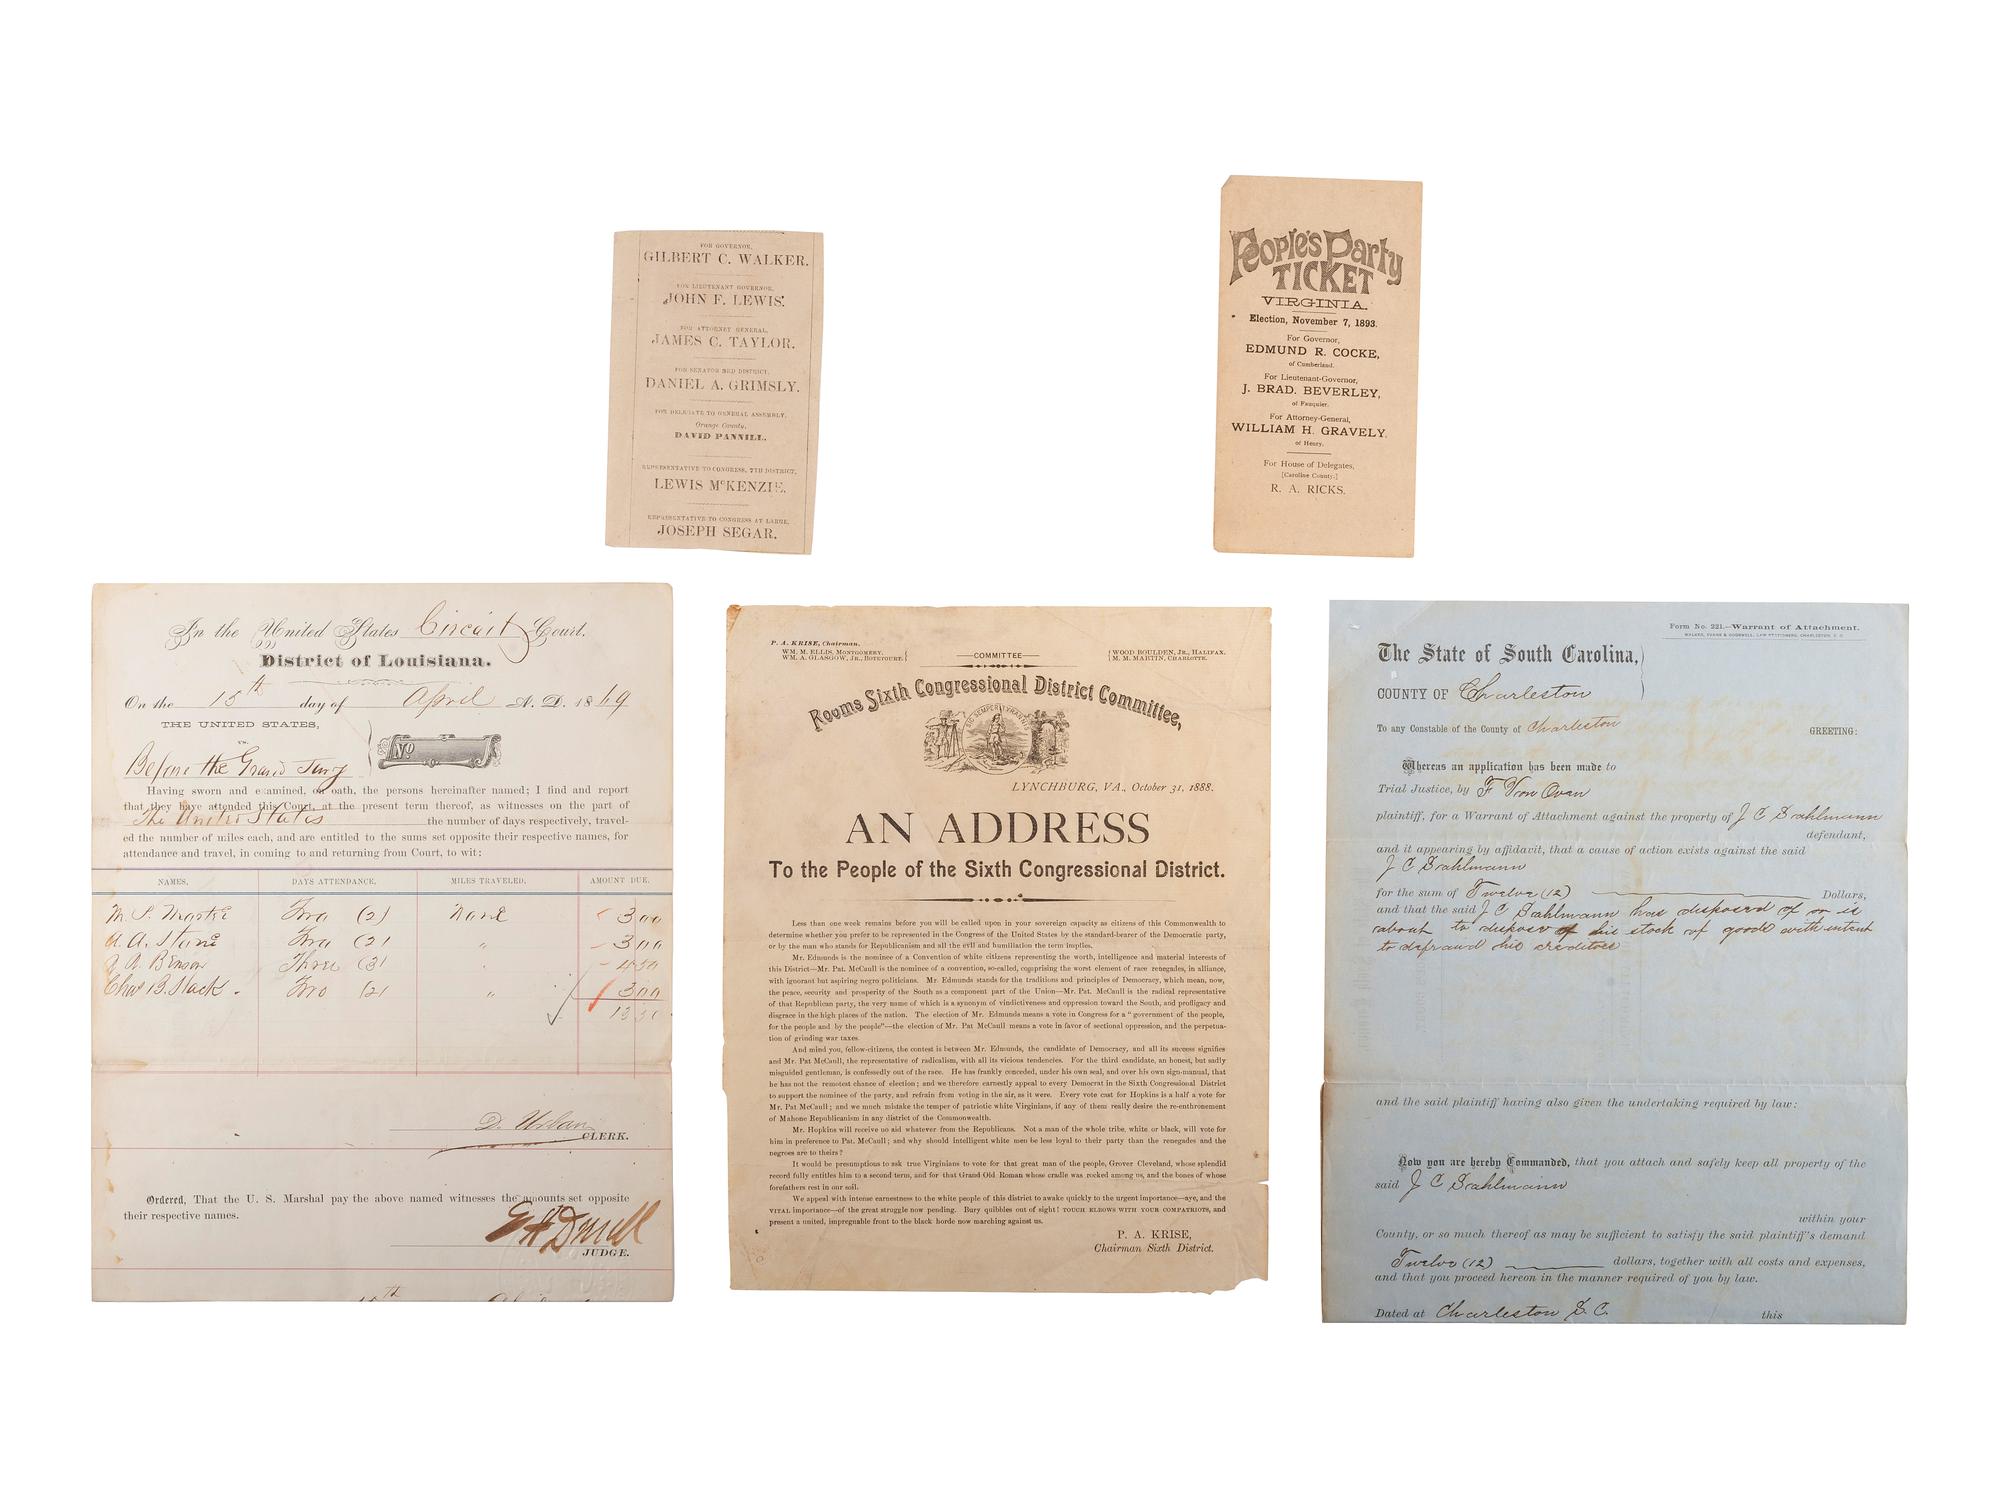 FOR GOVERNOR,
GILBERT C. WALKER.
FOR LIEUTENANT GOVERNOR,
JOHN F. LEWIS.
FOR ATTORNEY GENERAL,
JAMES C. TAYLOR.
FOR SENATOR 3RD DISTRICT,
DANIEL A. GRIMSLY.
FOR DELEGATE TO GENERAL ASSEMBLY,
Orange County,
DAVID PANNILL.
REPRESENTATIVE TO CONGRESS, 7TH DISTRICT,
LEWIS McKENZIE.
REPRESENTATIVE TO CONGRESS AT LARGE,
JOSEPH SEGAR.
People's Party
TICKET
VIRGINIA.
Election, November 7, 1893.
For Governor,
EDMUND R. COCKE,
of Cumberland.
For Lieutenant-Governor,
J. BRAD. BEVERLEY,
of Fauquier.
For Attorney-General,
WILLIAM H. GRAVELY,
of Henry.
For House of Delegates,
[Caroline County.]
R. A. RICKS.
In the United States Circuit Court.
District of Louisiana.
On the 15th day of April A. D. 1869
THE UNITED STATES,
vs.
Before the Grand Jury
No
Having sworn and examined, on oath, the persons hereinafter named; I find and report
that they have attended this Court, at the present term thereof, as witnesses on the part of
The United States the number of days respectively, travel-
ed the number of miles each, and are entitled to the sums set opposite their respective names, for
attendance and travel, in coming to and returning from Court, to wit:
NAMES. DAYS ATTENDANCE. MILES TRAVELED. AMOUNT DUE.
Two (2) None 3 00
A. A. Two (2) " 3 00
Benson Three (3) " 4 50
Chas B. Slack Two (2) " 3 00
13 50
D. Urban
CLERK.
Ordered, That the U. S. Marshal pay the above named witnesses the amounts set opposite
their respective names.
E H Durell
JUDGE.
P. A. KRISE, Chairman.
WM. M. ELLIS, MONTGOMERY. COMMITTEE WOOD BOULDEN, JR., HALIFAX.
WM. A. GLASGOW, JR., BOTETOURT. M. M. MARTIN, CHARLOTTE.
Rooms Sixth Congressional District Committee,
SIC SEMPER TYRANNIS
LYNCHBURG, VA., October 31, 1888.
AN ADDRESS
To the People of the Sixth Congressional District.
Less than one week remains before you will be called upon in your sovereign capacity as citizens of this Commonwealth to
determine whether you prefer to be represented in the Congress of the United States by the standard-bearer of the Democratic party,
or by the man who stands for Republicanism and all the evil and humiliation the term implies.
Mr. Edmunds is the nominee of a Convention of white citizens representing the worth, intelligence and material interests of
this District—Mr. Pat. McCaull is the nominee of a convention, so-called, comprising the worst element of race renegades, in alliance,
with ignorant but aspiring negro politicians. Mr. Edmunds stands for the traditions and principles of Democracy, which mean, now,
the peace, security and prosperity of the South as a component part of the Union—Mr. Pat. McCaull is the radical representative
of that Republican party, the very name of which is a synonym of vindictiveness and oppression toward the South, and profligacy and
disgrace in the high places of the nation. The election of Mr. Edmunds means a vote in Congress for a "government of the people,
for the people and by the people"—the election of Mr. Pat McCaull means a vote in favor of sectional oppression, and the perpetua-
tion of grinding war taxes.
And mind you, fellow-citizens, the contest is between Mr. Edmunds, the candidate of Democracy, and all its success signifies
and Mr. Pat McCaull, the representative of radicalism, with all its vicious tendencies. For the third candidate, an honest, but sadly
misguided gentleman, is confessedly out of the race. He has frankly conceded, under his own seal, and over his own sign-manual, that
he has not the remotest chance of election; and we therefore earnestly appeal to every Democrat in the Sixth Congressional District
to support the nominee of the party, and refrain from voting in the air, as it were. Every vote cast for Hopkins is a half a vote for
Mr. Pat McCaull; and we much mistake the temper of patriotic white Virginians, if any of them really desire the re-enthronement
of Mahone Republicanism in any district of the Commonwealth.
Mr. Hopkins will receive no aid whatever from the Republicans. Not a man of the whole tribe, white or black, will vote for
him in preference to Pat. McCaull; and why should intelligent white men be less loyal to their party than the renegades and the
negroes are to theirs?
It would be presumptuous to ask true Virginians to vote for that great man of the people, Grover Cleveland, whose splendid
record fully entitles him to a second term, and for that Grand Old Roman whose cradle was rocked among us, and the bones of whose
forefathers rest in our soil.
We appeal with intense earnestness to the white people of this district to awake quickly to the urgent importance—aye, and the
VITAL importance—of the great struggle now pending. Bury quibbles out of sight! TOUCH ELBOWS WITH YOUR COMPATRIOTS, and
present a united, impregnable front to the black horde now marching against us.
P. A. KRISE,
Chairman Sixth District.
Form No. 221.—Warrant of Attachment.
WALKER, EVANS & COGSWELL, LAW STATIONERS, CHARLESTON, S. C.
The State of South Carolina,
COUNTY OF Charleston
To any Constable of the County of Charleston GREETING:
Whereas an application has been made to
Trial Justice, by F Von Ovan
plaintiff, for a Warrant of Attachment against the property of J C Dahlmann
defendant,
and it appearing by affidavit, that a cause of action exists against the said
J C Dahlmann
for the sum of Twelve (12) Dollars,
and that the said J C Dahlmann has disposed of or is
about to dispose of his stock of goods with intent
to defraud his creditors
and the said plaintiff having also given the undertaking required by law:
Now you are hereby Commanded, that you attach and safely keep all property of the
said J C Dahlmann
within your
County, or so much thereof as may be sufficient to satisfy the said plaintiff's demand
Twelve (12) dollars, together with all costs and expenses,
and that you proceed hereon in the manner required of you by law.
Dated at Charleston S. C. this